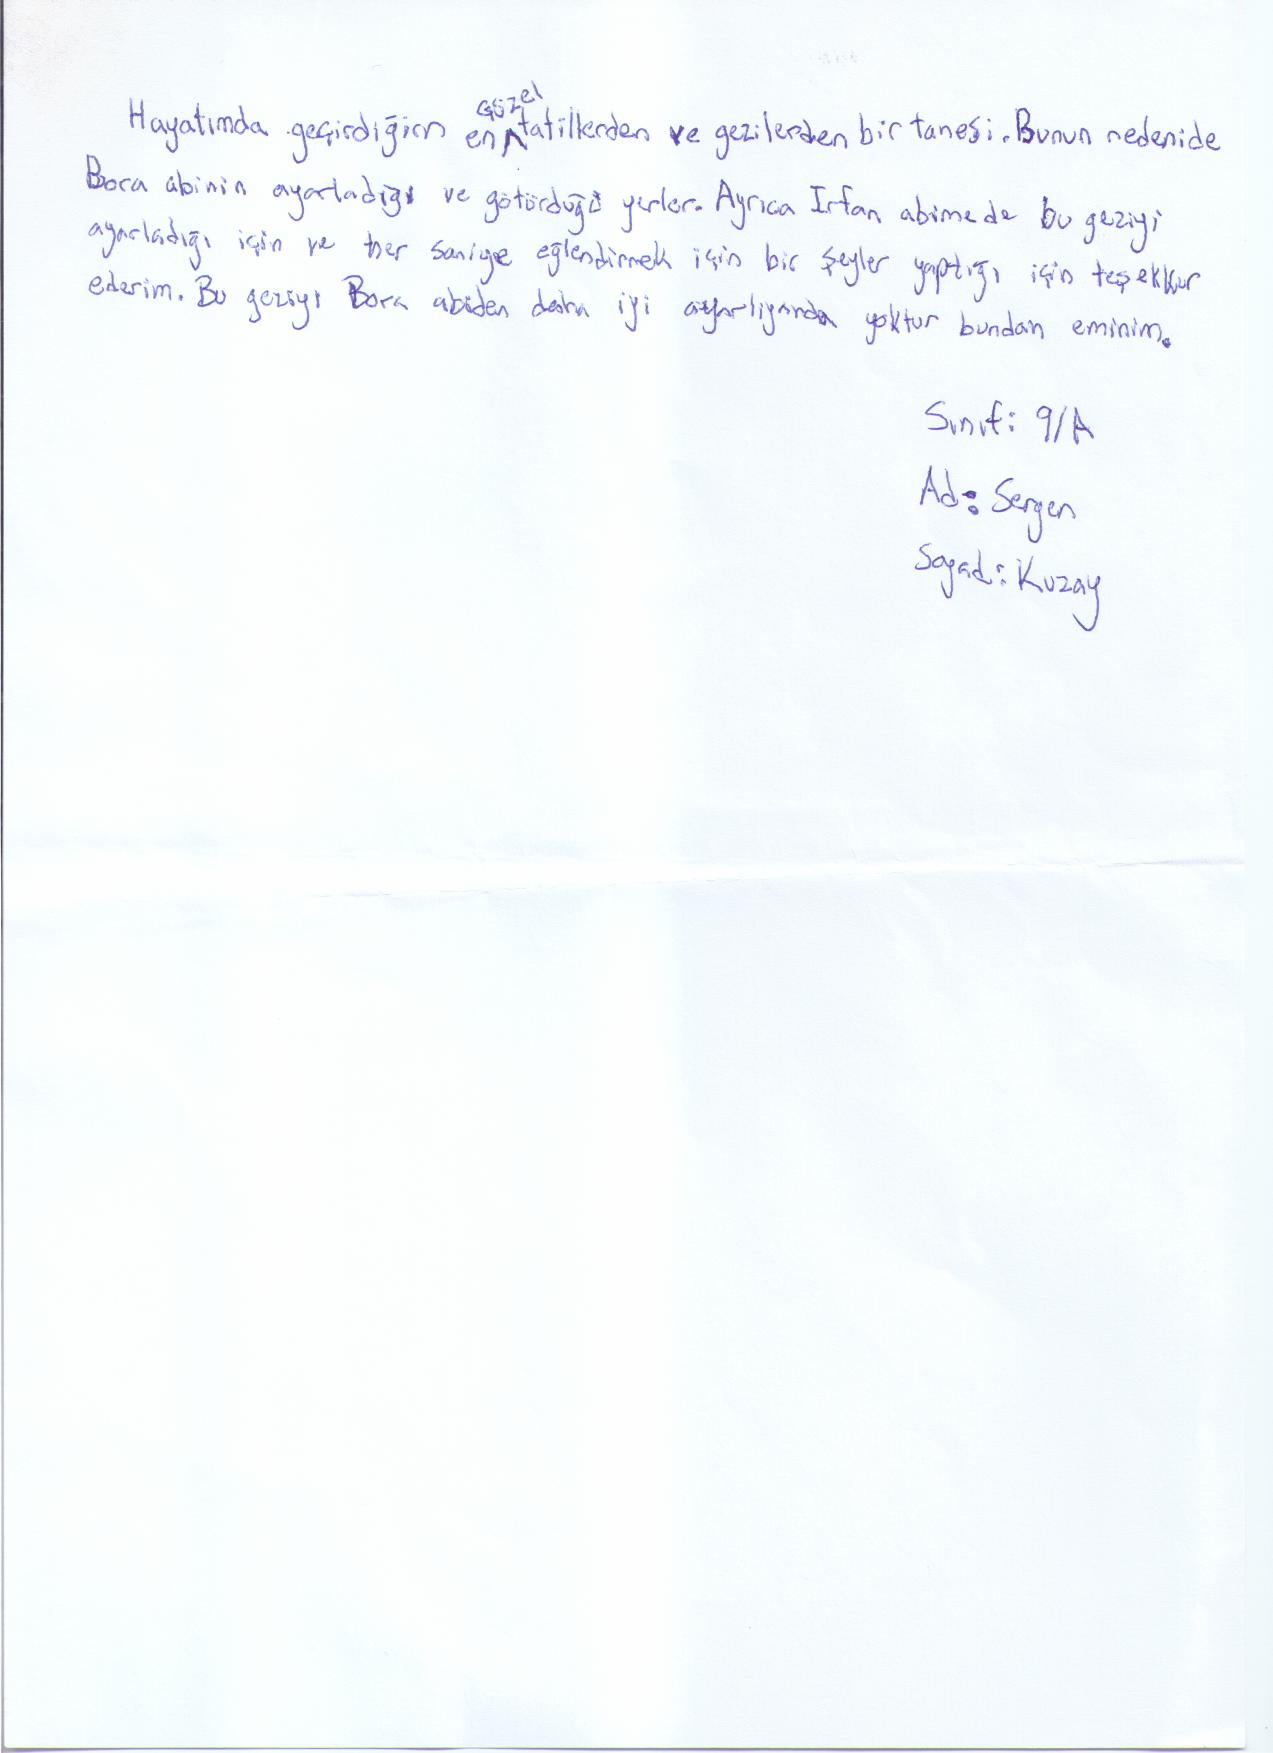 Hayatımda geçirdiğim en güzel tatillerden ve gezilerden bir tanesi. Bunun nedenide
Bora abinin ayarladığı ve götürdüğü yerler. Ayrıca İrfan abimede bu geziyi
ayarladığı için ve her saniye eğlendirmek için bir şeyler yaptığı için teşekkur
ederim. Bu geziyi Bora abiden daha iyi ayarlıyanda yoktur bundan eminim.
Sınıf: 9/A
Ad: Sergen
Soyad: Kuzay